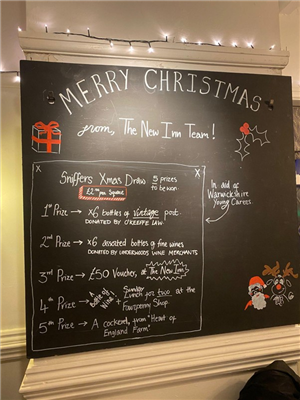 MERRY CHRISTMAS
from, The New Inn Team!
Sniffers Xmas Draw
5 prizes
to be won
£2.00 per Square
In aid of
Warwickshire
Young Carers
1st Prize → x6 bottles of Vintage port
DONATED BY O'KEEFFE LAW.
2nd Prize → x6 assorted bottles of fine wines
DONATED BY UNDERWOODS WINE MERCHANTS
3rd Prize → £50 Voucher, at The New Inn
4th Prize → A bottle of Wine + Sunday Lunch for two at the
Fourpenny Shop
5th Prize → A cockerel, from "Heart of
England Farm"